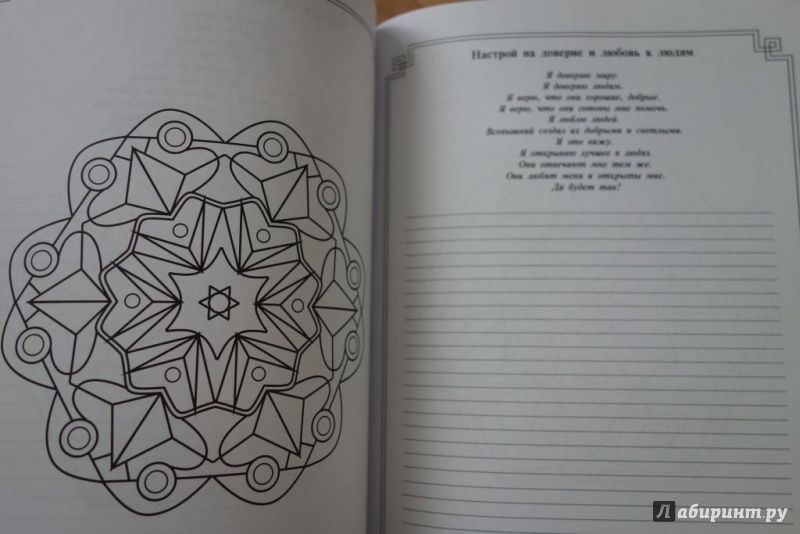 Настрой на доверие и любовь к людям
Я доверяю миру.
Я доверяю людям.
Я верю, что они хорошие, добрые.
Я верю, что они готовы мне помочь.
Я люблю людей.
Всевышний создал их добрыми и светлыми.
Я это вижу.
Я открываю лучшее в людях
Они отвечают мне тем же.
Они любят меня и открыты мне.
Да будет так!
Лабиринт.ру